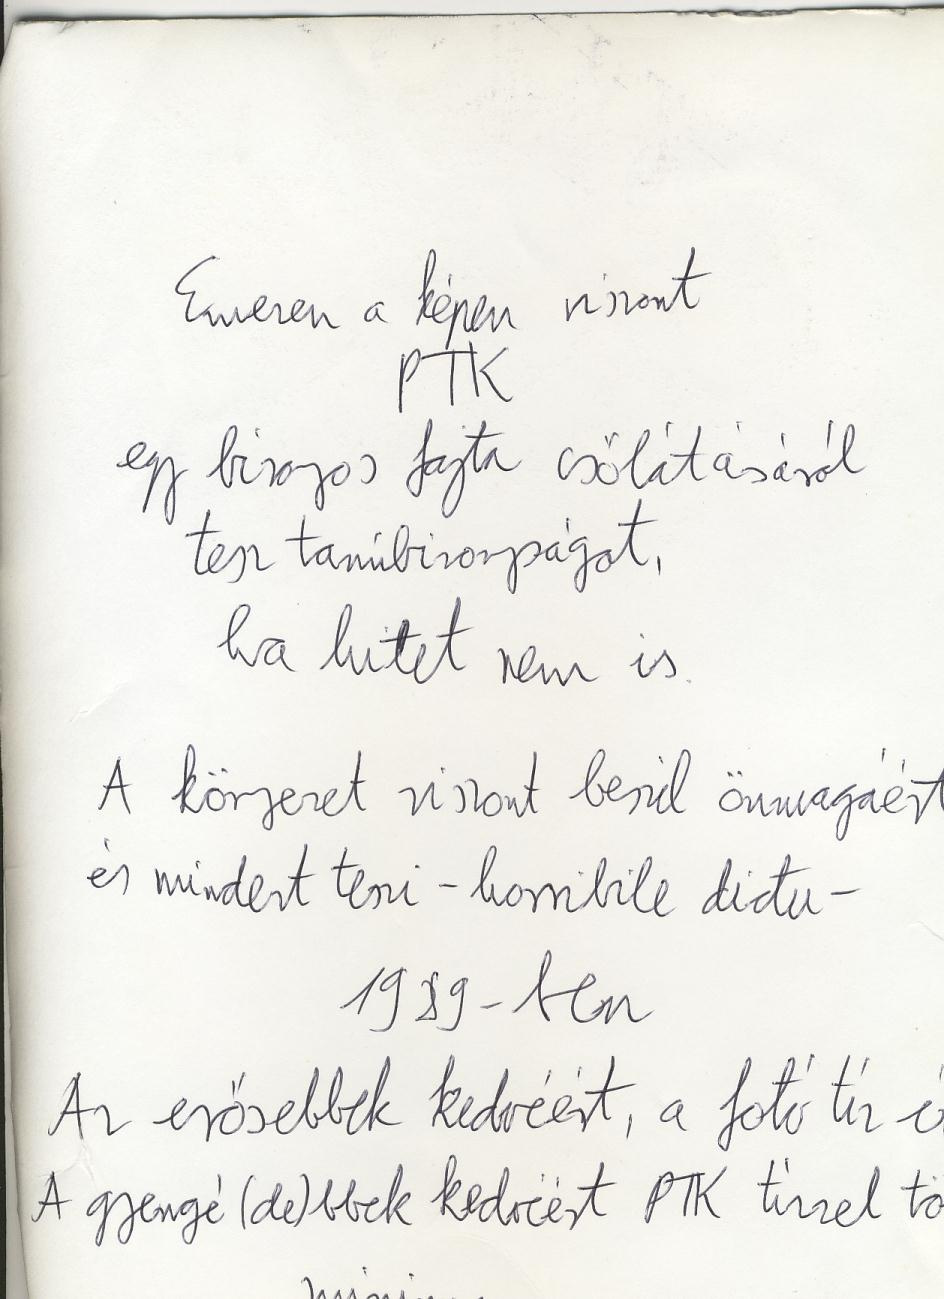 Emezen a képen viszont
PTK
egy bizonyos fajta csőlátásáról
tesz tanúbizonyságot,
ha hitet nem is.
A környezet viszont beszél önmagáért
és mindezt teszi - horribile dictu -
1989-ben
Az erősebbek kedvéért, a fotó tíz é
A gyengé(de)bbek kedvéért PTK tízzel tö